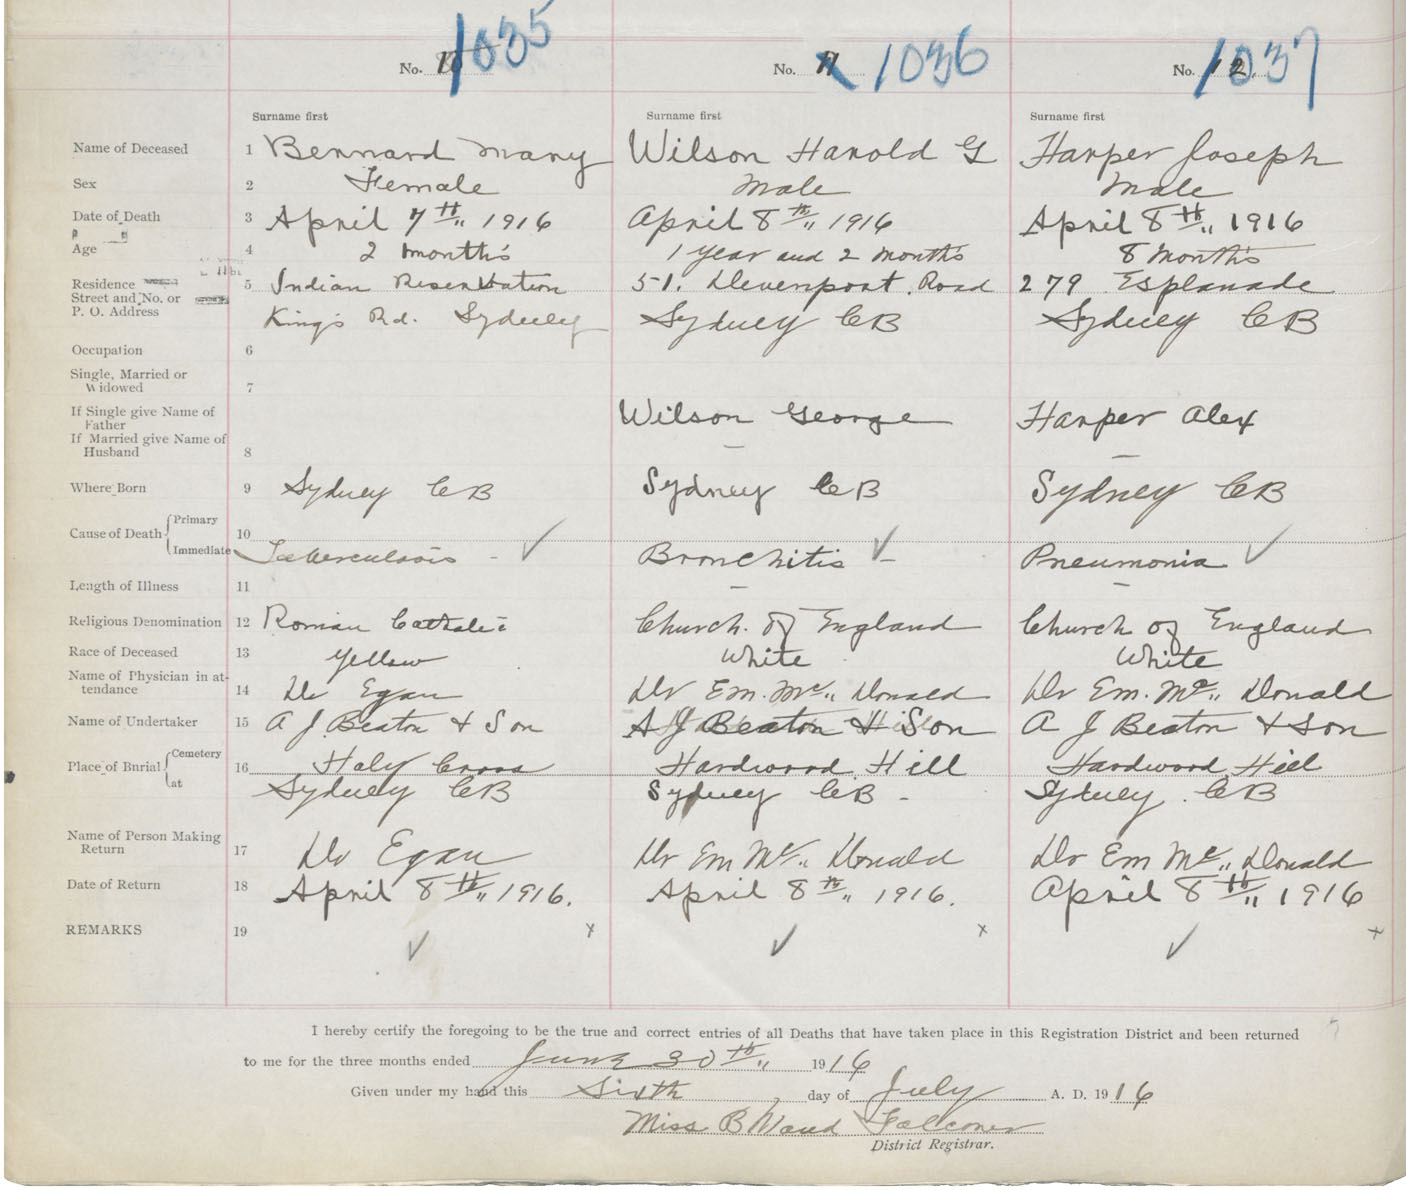 No. 10 1035 No. 11 1036 No. 12 1037
Surname first Surname first Surname first
Name of Deceased 1 Bernard Mary Wilson Harold G Harper Joseph
Sex 2 Female Male Male
Date of Death 3 April 7th,, 1916 April 8th,, 1916 April 8th,, 1916
Age 4 2 months 1 year and 2 months 8 Months
Residence 5 Indian Reservation 51. Devenport Road 279 Esplanade
Street and No. or
P. O. Address King's Rd. Sydney Sydney CB Sydney CB
Occupation 6
Single, Married or
Widowed 7
If Single give Name of Wilson George Harper Alex
Father
If Married give Name of
Husband 8
Where Born 9 Sydney CB Sydney CB Sydney CB
Cause of Death { Primary 10
Immediate Tuberculosis - ✓ Bronchitis ✓ - Pneumonia ✓
Length of Illness 11
Religious Denomination 12 Roman Catholic Church of England Church of England
Race of Deceased 13 Yellow White White
Name of Physician in at-
tendance 14 Dr Egan Dr Em. Mc,, Donald Dr Em. Mc,, Donald
Name of Undertaker 15 A J Beaton & Son A J Beaton & Son A J Beaton & Son
Place of Burial { Cemetery 16 Holy Cross Hardwood Hill Hardwood Hill
at Sydney CB Sydney CB - Sydney CB
Name of Person Making
Return 17 Dr Egan Dr Em Mc,, Donald Dr Em Mc,, Donald
Date of Return 18 April 8th,, 1916. April 8th,, 1916. April 8th,, 1916
REMARKS 19 x x x
✓ ✓ ✓
I hereby certify the foregoing to be the true and correct entries of all Deaths that have taken place in this Registration District and been returned
to me for the three months ended June 30th,, 1916
Given under my hand this Sixth day of July A. D. 1916
Miss B Maud Falconer
District Registrar.